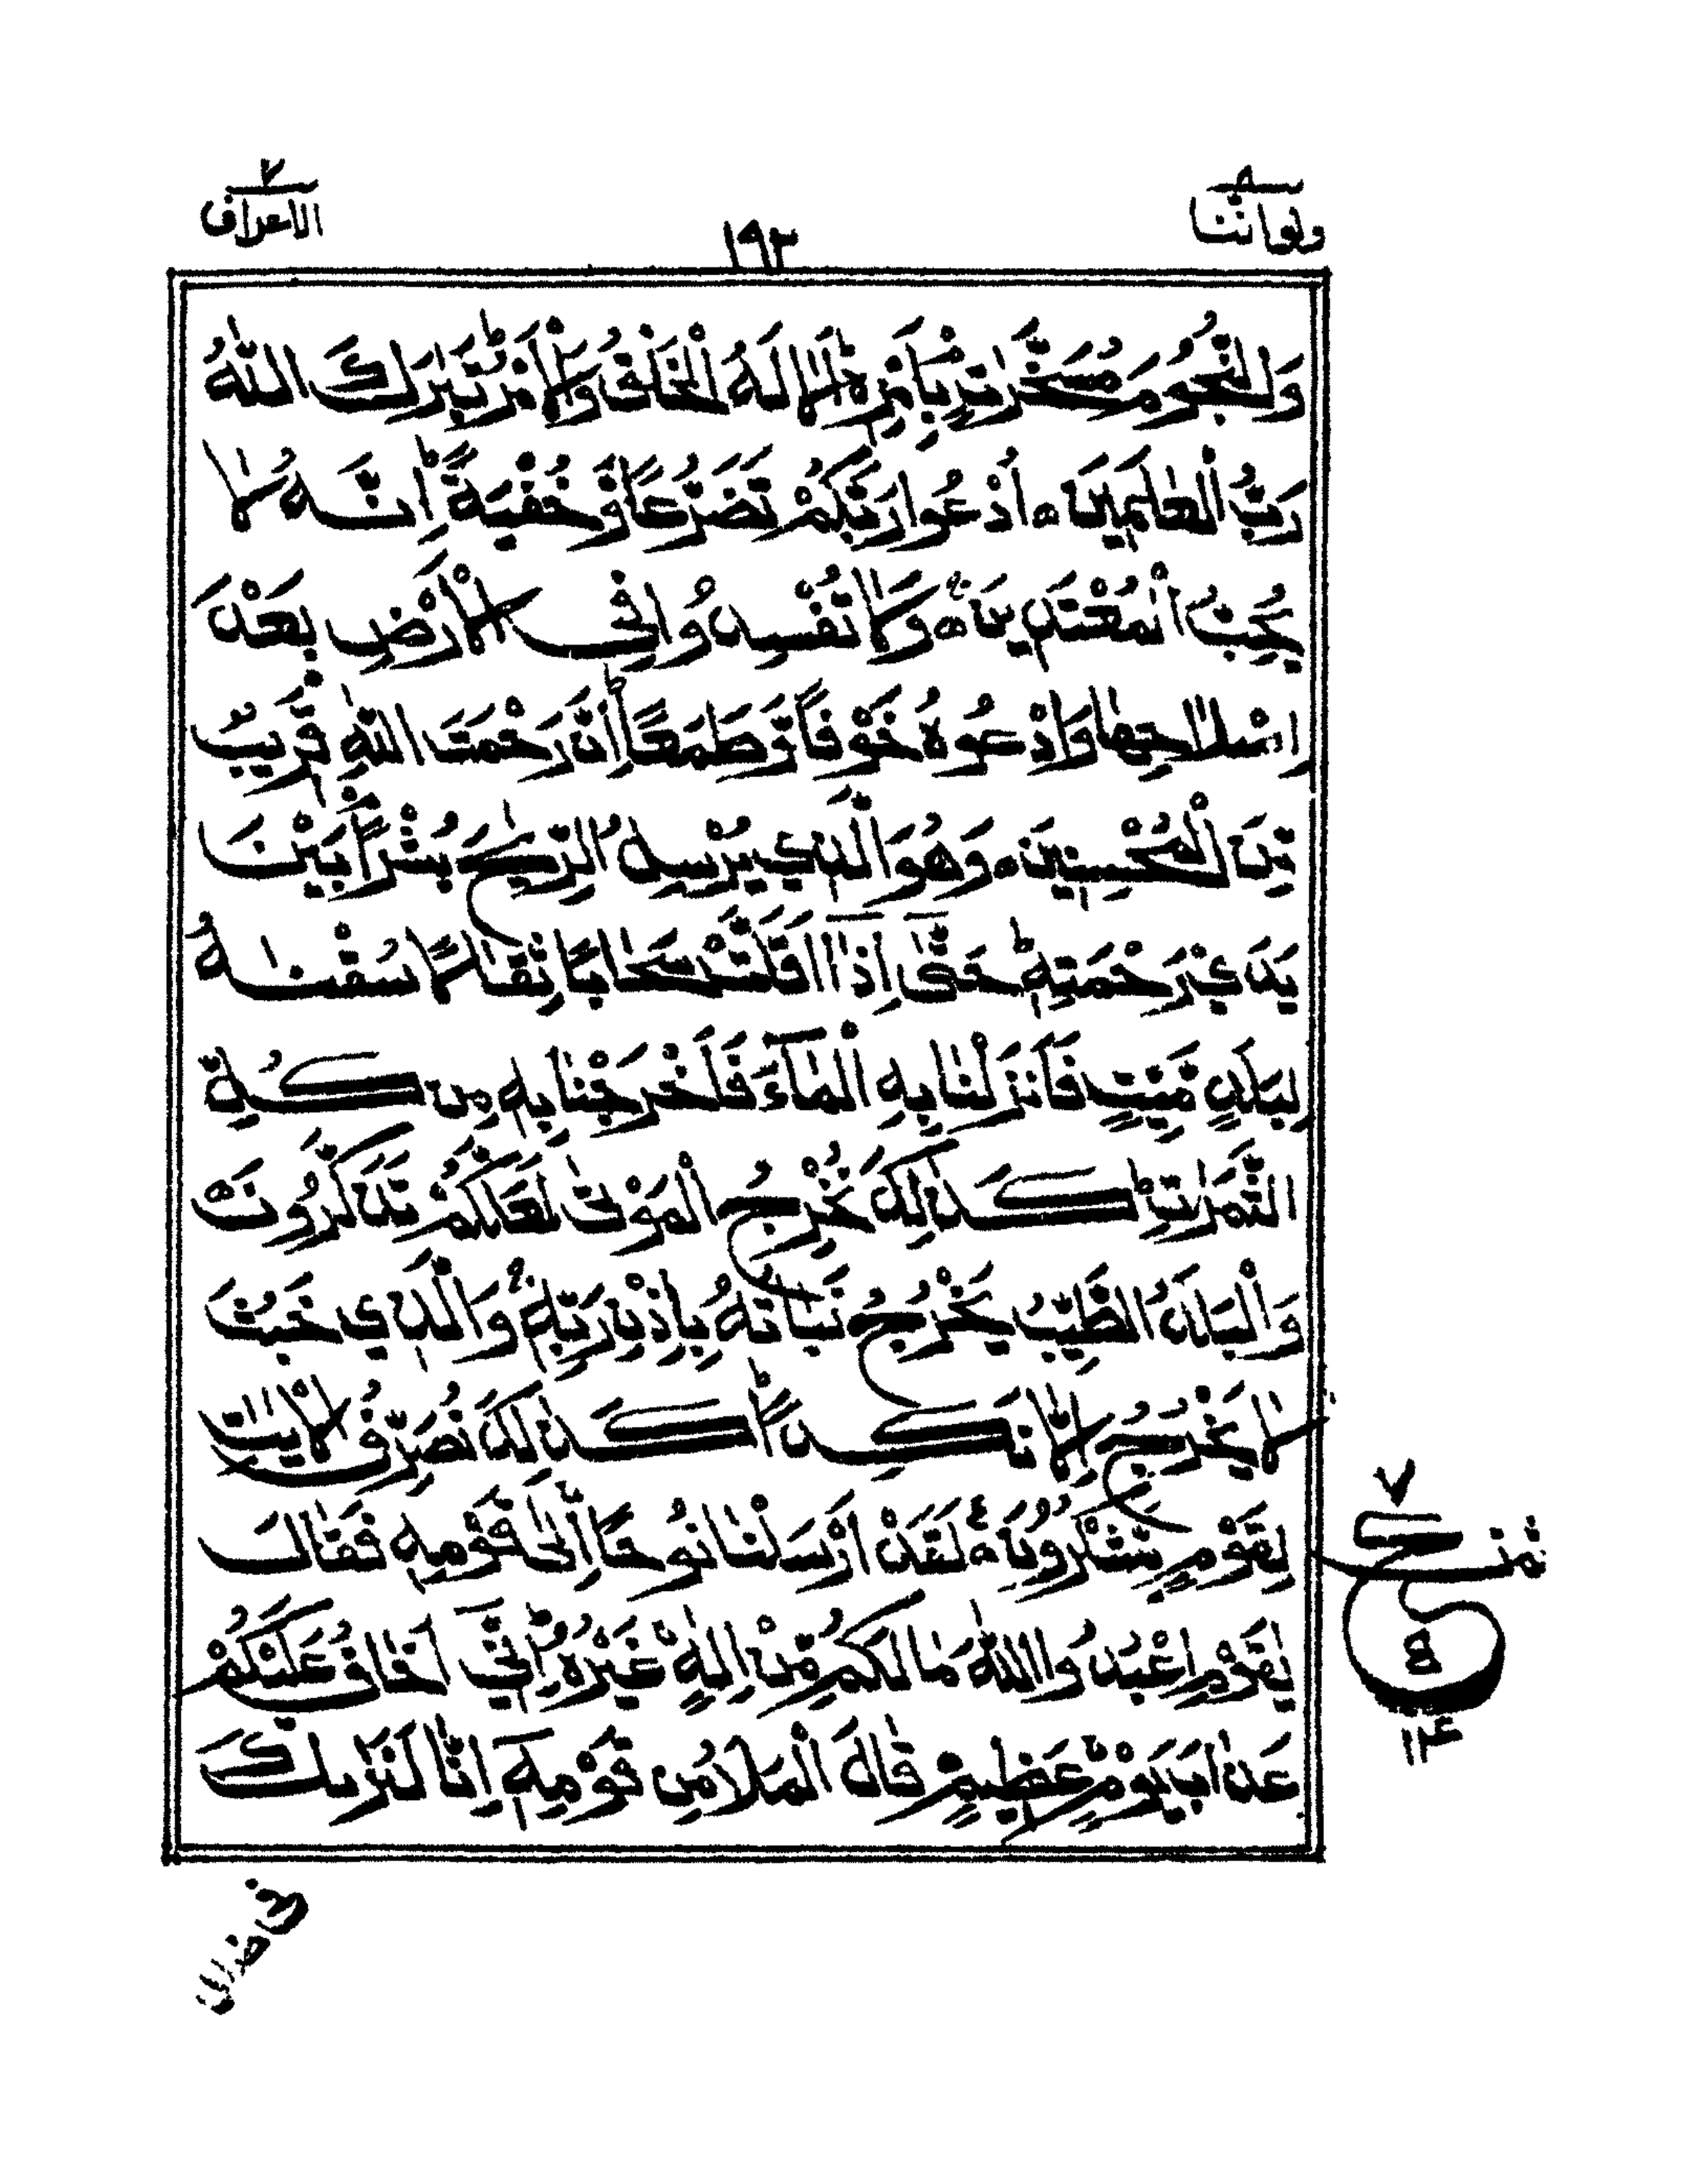 ولواننا ٨
١٩٣
الاعراف ٧
وَالنُّجُومَ مُسَخَّرٰتٍۭ بِاَمْرِهٖ ؕ اَلَا لَهُ الْخَلْقُ وَالْاَمْرُ ؕ تَبٰرَكَ اللّٰهُ
رَبُّ الْعٰلَمِيْنَ ۝ اُدْعُوْا رَبَّكُمْ تَضَرُّعًا وَّخُفْيَةً ؕ اِنَّهٗ لَا
يُحِبُّ الْمُعْتَدِيْنَ ۝ وَلَا تُفْسِدُوْا فِى الْاَرْضِ بَعْدَ
اِصْلَاحِهَا وَادْعُوْهُ خَوْفًا وَّطَمَعًا ؕ اِنَّ رَحْمَتَ اللّٰهِ قَرِيْبٌ
مِّنَ الْمُحْسِنِيْنَ ۝ وَهُوَ الَّذِيْ يُرْسِلُ الرِّيٰحَ بُشْرًۢا بَيْنَ
يَدَيْ رَحْمَتِهٖ ؕ حَتّٰٓى اِذَآ اَقَلَّتْ سَحَابًا ثِقَالًا سُقْنٰهُ
لِبَلَدٍ مَّيِّتٍ فَاَنْزَلْنَا بِهِ الْمَآءَ فَاَخْرَجْنَا بِهٖ مِنْ كُلِّ
الثَّمَرٰتِ ؕ كَذٰلِكَ نُخْرِجُ الْمَوْتٰى لَعَلَّكُمْ تَذَكَّرُوْنَ ۝
وَالْبَلَدُ الطَّيِّبُ يَخْرُجُ نَبَاتُهٗ بِاِذْنِ رَبِّهٖ ۚ وَالَّذِيْ خَبُثَ
لَا يَخْرُجُ اِلَّا نَكِدًا ؕ كَذٰلِكَ نُصَرِّفُ الْاٰيٰتِ
لِقَوْمٍ يَّشْكُرُوْنَ ۝ ع لَقَدْ اَرْسَلْنَا نُوْحًا اِلٰى قَوْمِهٖ فَقَالَ
يٰقَوْمِ اعْبُدُوا اللّٰهَ مَا لَكُمْ مِّنْ اِلٰهٍ غَيْرُهٗ ؕ اِنِّيْٓ اَخَافُ عَلَيْكُمْ
عَذَابَ يَوْمٍ عَظِيْمٍ ۝ قَالَ الْمَلَاُ مِنْ قَوْمِهٖٓ اِنَّا لَنَرٰىكَ
ثمن
٧
ع
٥
١٤
فى ضلال